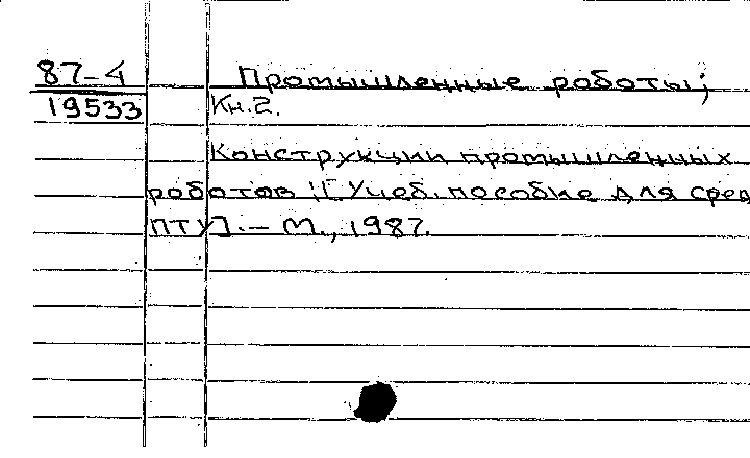 87-4 Промышленные роботы;
19533 Кн.2.
Конструкции промышленных
роботов : [Учеб. пособие для сред
ПТУ]. — М., 1987.